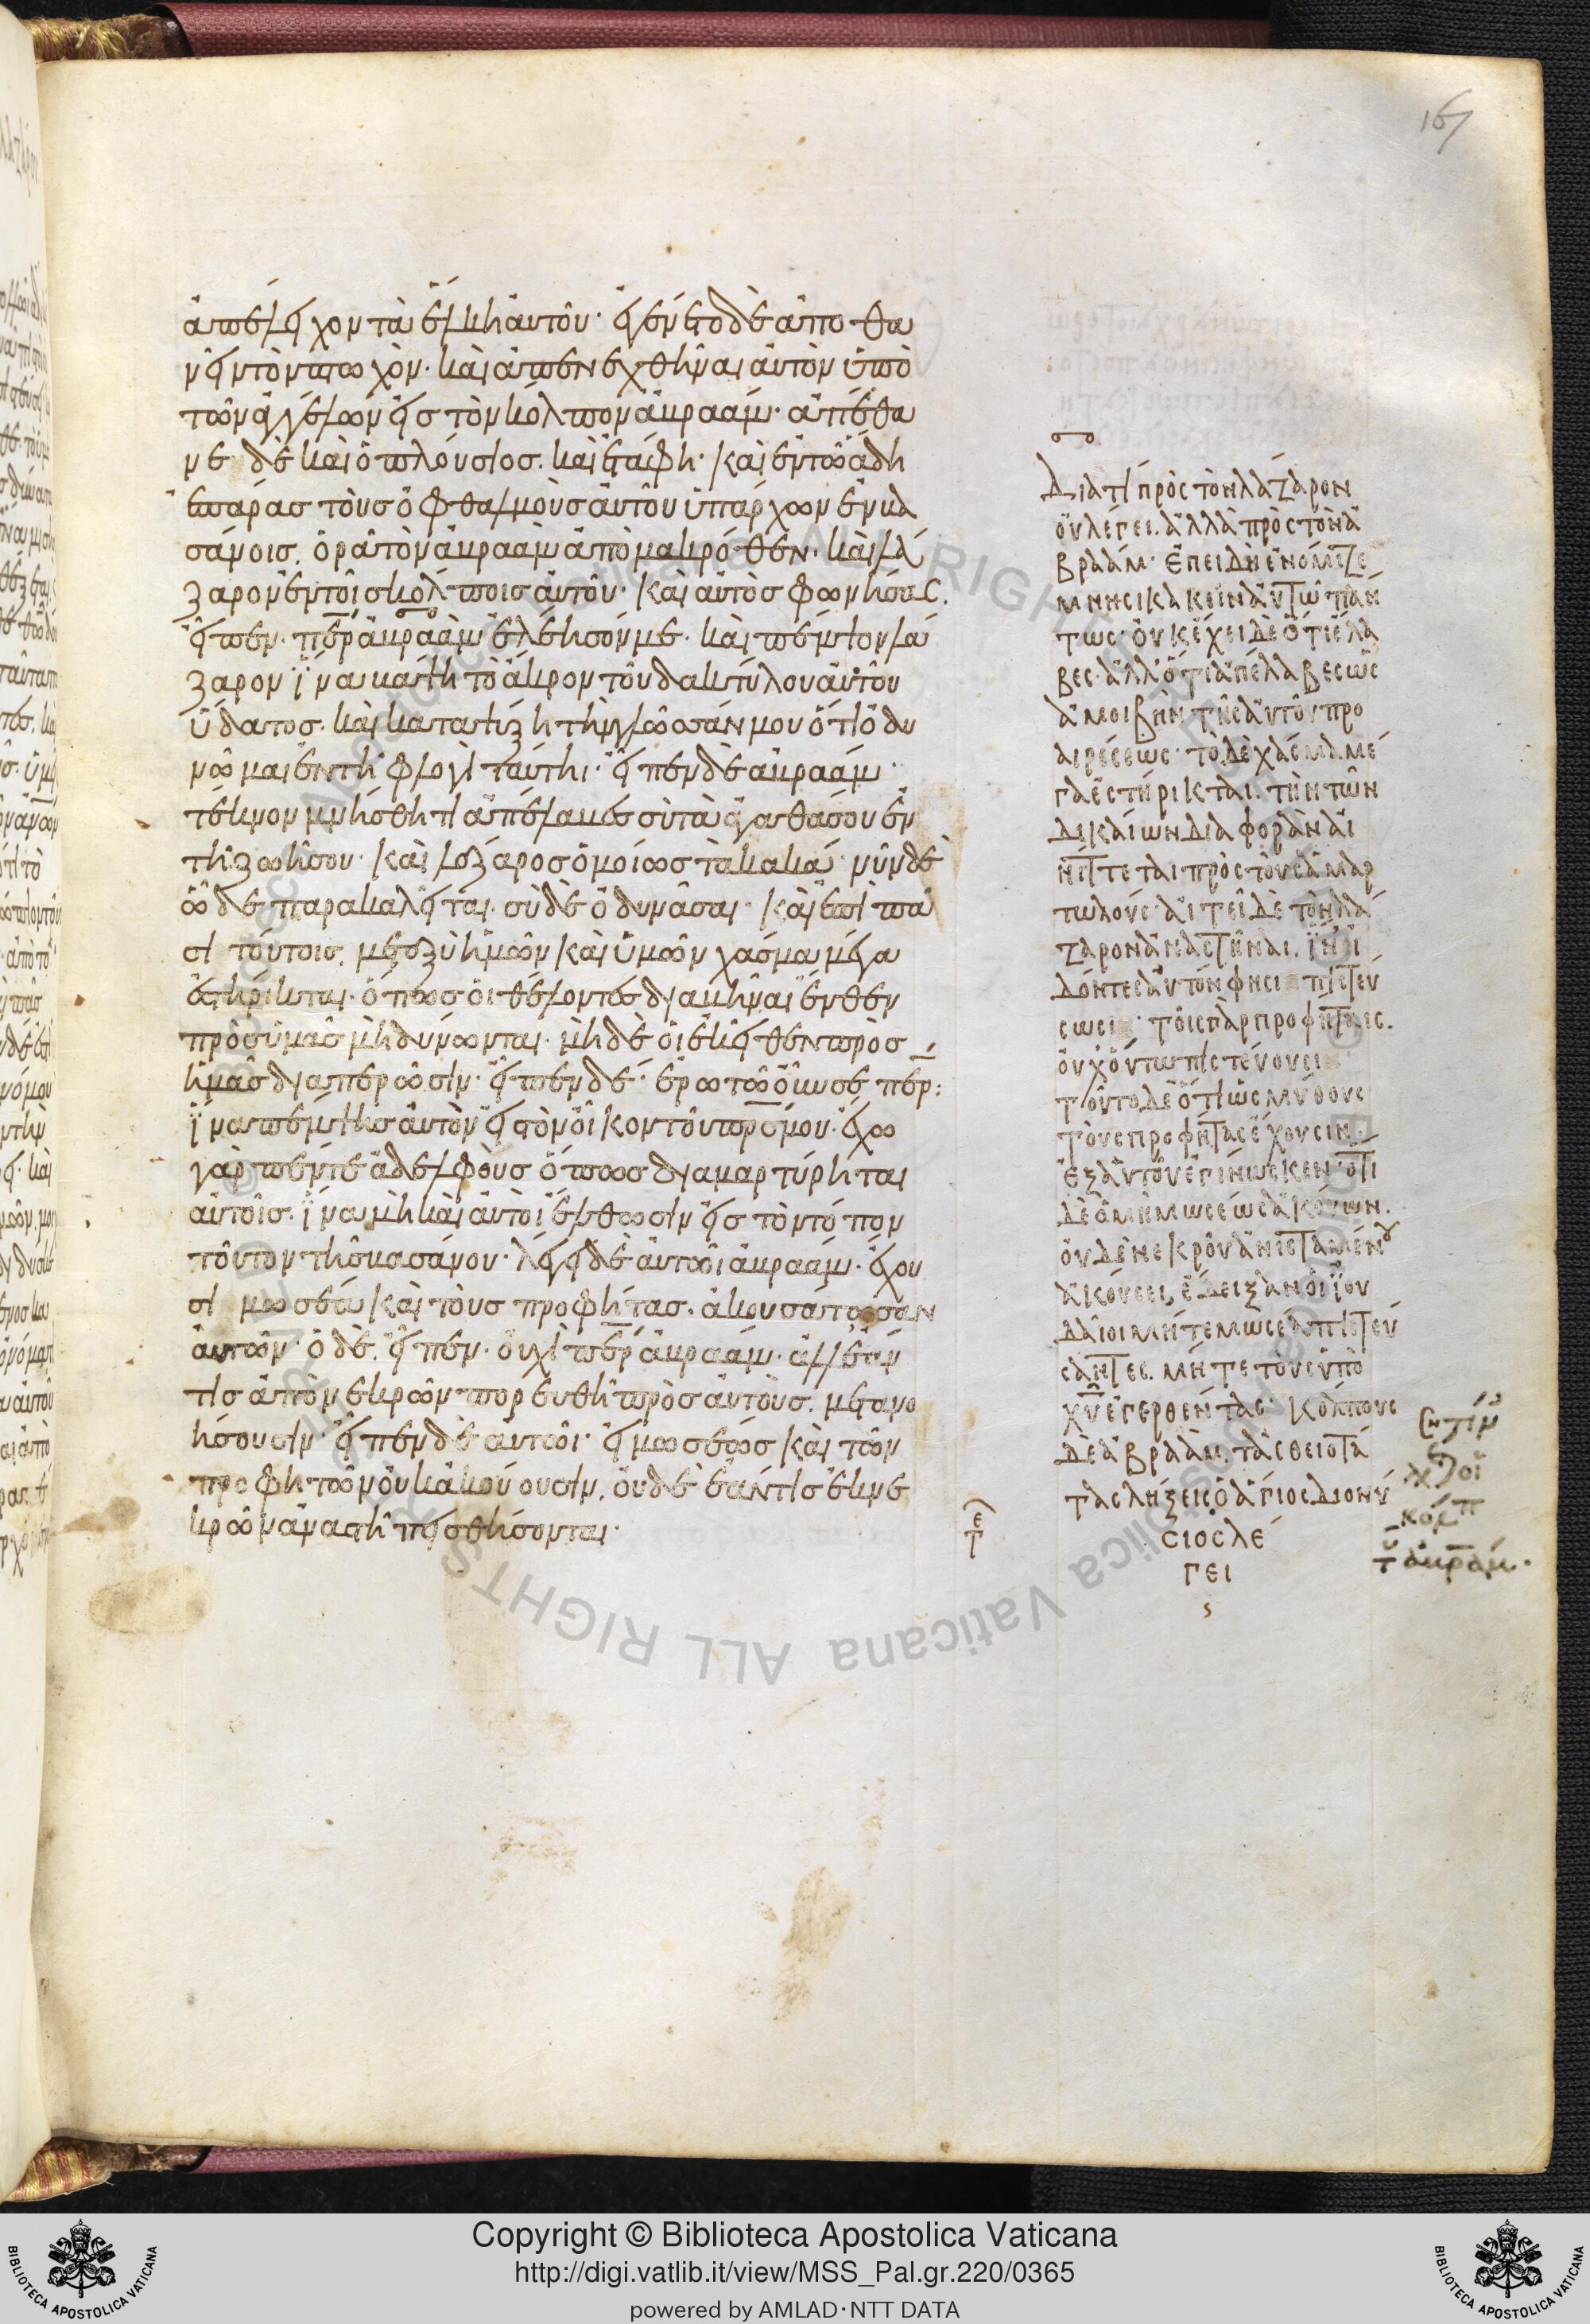 167
ἀπέλειχον τὰ ἕλκη αὐτοῦ· ἐγένετο δὲ ἀποθα
νεῖν τὸν πτωχὸν· καὶ ἀπενεχθῆναι αὐτὸν ὑπὸ
τῶν ἀγγέλων εἰς τὸν κόλπον ἀβραάμ· ἀπέθα
νε δὲ καὶ ὁ πλούσιος. καὶ ἐτάφη· καὶ ἐν τῶ ἅδη
ἐπάρας τοὺς ὀφθαλμοὺς αὐτοῦ ὑπάρχων ἐν βα
σάνοις. ὁρᾶ τὸν ἀβραὰμ ἀπὸ μακρόθεν. καὶ λά
ζαρον ἐν τοῖς κόλποις αὐτοῦ· καὶ αὐτὸς φωνήσας.
εἶπεν· περ ἀβραὰμ ἐλέησόν με. καὶ πέμψον λά
ζαρον ἵνα βάψη τὸ ἄκρον τοῦ δακτύλου αὐτοῦ
ὕδατος. καὶ καταψύξη τὴν γλῶσσάν μου ὅτι ὀδυ
νῶμαι ἐν τῆ φλογὶ ταύτηι· εἶπεν δὲ ἀβραάμ·
τέκνον μνήσθητι ἀπέλαβες σὺ τὰ ἀγαθά σου ἐν
τῆ ζωῆ σου· καὶ λάζαρος ὁμοίως τὰ κακά· νῦν δὲ
ὧδε παρακαλεῖται. σὺ δὲ ὀδυνᾶσαι· καὶ ἐπὶ πᾶ
σι τούτοις. μεταξὺ ἡμῶν καὶ ὑμῶν χάσμα μέγα
ἐστήρικται· ὅπως οἱ θέλοντες διαβῆναι ἔνθεν
πρὸς ὑμᾶς μὴ δύνωνται. μὴ δὲ οἱ ἐκεῖθεν πρὸς
ἡμᾶς διαπερῶσιν· εἶπεν δέ· ἐρωτῶ οὖν σε περ:
ἵνα πέμψης αὐτὸν εἰς τὸν οἶκον τοῦ πρσ μου· ἔχω
γὰρ πέντε ἀδελφοὺς ὅπως διαμαρτύρηται
αὐτοῖς. ἵνα μὴ καὶ αὐτοὶ ἔλθωσιν εἰς τὸν τόπον
τοῦτον τῆς βασάνου· λέγει δὲ αὐτῶι ἀβραάμ· ἔχου
σι μωσέα καὶ τοὺς προφήτας. ἀκουσάτωσαν
αὐτῶν· ὁ δὲ. εἶπεν· οὐχὶ περ ἀβραάμ· ἀλλ' ἐάν
τις ἀπὸ νεκρῶν πορευθῆ πρὸς αὐτοὺς. μετανο
ήσουσιν· εἶπεν δὲ αὐτῶι· εἰ μωσέως καὶ τῶν
προφητῶν οὐκ ἀκούουσιν. οὐδὲ ἐάν τις ἐκ νε
κρῶν ἀναστῆ πεισθήσονται·
Διατί πρὸς τὸν λάζαρον
οὐ λέγει. ἀλλὰ πρὸς τὸν ἀ
βραάμ· ἐπειδὴ ἐνόμιζε
μνησικακεῖν αὐτῶ πάν
τως· οὐκ ἔχει δὲ ὅτι ἔλα
βες· ἀλλ' ὅτι ἀπέλαβες ὡς
ἀμοιβὴν τῆς αὐτοῦ προ
αιρέσεως· τὸ δὲ χάσμα μέ
γα ἐστήρικται. τὴν τῶν
δικαίων διαφορὰν αἰ
νίττεται πρὸς τοὺς ἁμαρ
τωλούς· αἰτεῖ δὲ τὸν λά
ζαρον ἀναστῆναι. ἵν' ἰ
δόντες αὐτόν φησι πιστεύ
σωσι τοῖς παρ προφήταις.
οὐχ οὕτω πιστεύουσι
τοῦτο δὲ ὅτι ὡς μύθους
τοὺς προφήτας ἔχουσιν·
ἐξ αὐτοῦ ἐγίνωσκεν· ὅτι
δὲ ὁ μὴ μωσέως ἀκούων.
οὐδὲ νεκροῦ ἀνισταμένου
ἀκούσει, ἔδειξαν οἱ ἰου
δαῖοι μήτε μωσέα πιστεύ
σαντες. μήτε τοὺς ὑπὸ
χυ ἐγερθέντας· κόλπους
δὲ ἀβραάμ. τὰς θειοτά
τας λήξεις ὁ ἅγιος διονύ
σιος λέ
γει
ετ
κόλπ
τ ἀβραάμ.
Copyright © Biblioteca Apostolica Vaticana
http://digi.vatlib.it/view/MSS_Pal.gr.220/0365
powered by AMLAD·NTT DATA
BIBLIOTECA APOSTOLICA VATICANA
BIBLIOTECA APOSTOLICA VATICANA